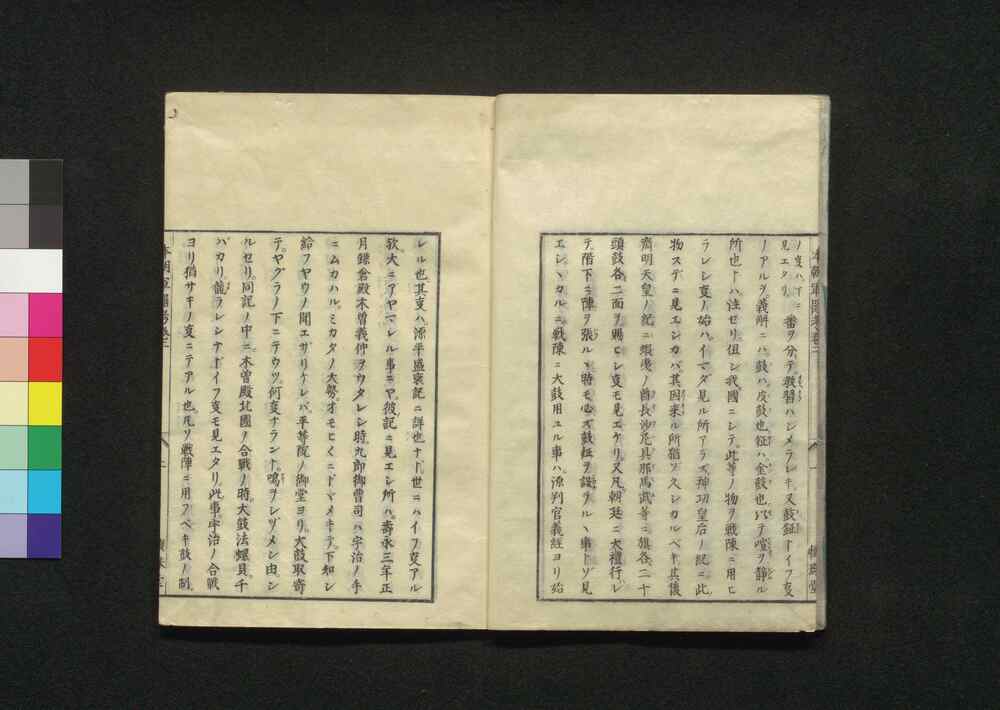 ノ變ハ 番ヲ分テ敎習ハシメラレキ又鼓鉦ナトイフ変
見エタリ
ノアルヲ義解ニハ鼓ハ皮鼓也鉦ハ金鼓也 テ喧ヲ静ル
所也トハ注セリ但シ我國ニシテ此等ノ物ヲ戰陳ニ用ヒ
ラレシ変ノ始ハイマダ見ル所アラズ神功皇后ノ紀ニ此
物スデニ見エシカバ其因来ル所猶ヲ久シカルベキ其後
齊明天皇ノ紀ニ蝦夷ノ酋長沙尼具那馬武等ニ旗各二十
頭鼓各二面ヲ賜ヒシ変モ見エケリ又凡朝廷ニ大禮行レ
テ階下ニ陣ヲ張ルヽ時モ必ズ鼓鉦ヲ設ラルヽ事トゾ見
エシヽカルニ戰陳ニ大鼓用ユル事ハ源判官義經ヨリ始
レル也其変ハ源平盛衰記ニ詳也ナド世ニハイフ変アル
欤大ニアヤマレル事ニヤ彼記ニ見エシ所ハ壽永三年正
月鎌倉殿木曽義仲ヲウタレシ時九郎御曹司ハ宇治ノ手
ニムカハル ミカタノ大勢オモヒ〱ニドヾメキテ下知シ
給フヤウノ聞エザリケレバ平等院ノ御堂ヨリ大鼓取寄
テヤグラノ下ニテウツ何変ナラント鳴ヲシヅメシ由シ
ルセリ同記ノ中ニ木曽殿北國ノ合戰ノ時大鼓法螺貝千
バカリ籠ラレシナドイフ変モ見エタリ此事宇治ノ合戰
ヨリ猶サキノ変ニテアル也凡ソ戰陣ニ用フベキ鼓ノ制